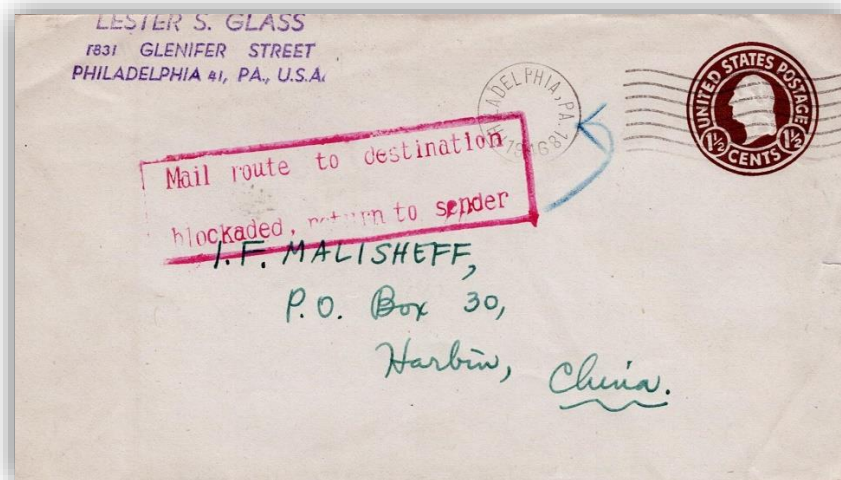 LESTER S. GLASS
1831 GLENIFER STREET
PHILADELPHIA 41, PA., U.S.A.
PHILADELPHIA, PA.
UNITED STATES POSTAGE
1½ CENTS 1½
Mail route to destination
blockaded, return to sender
I.F. MALISHEFF,
P.O. Box 30,
Harbin, China.